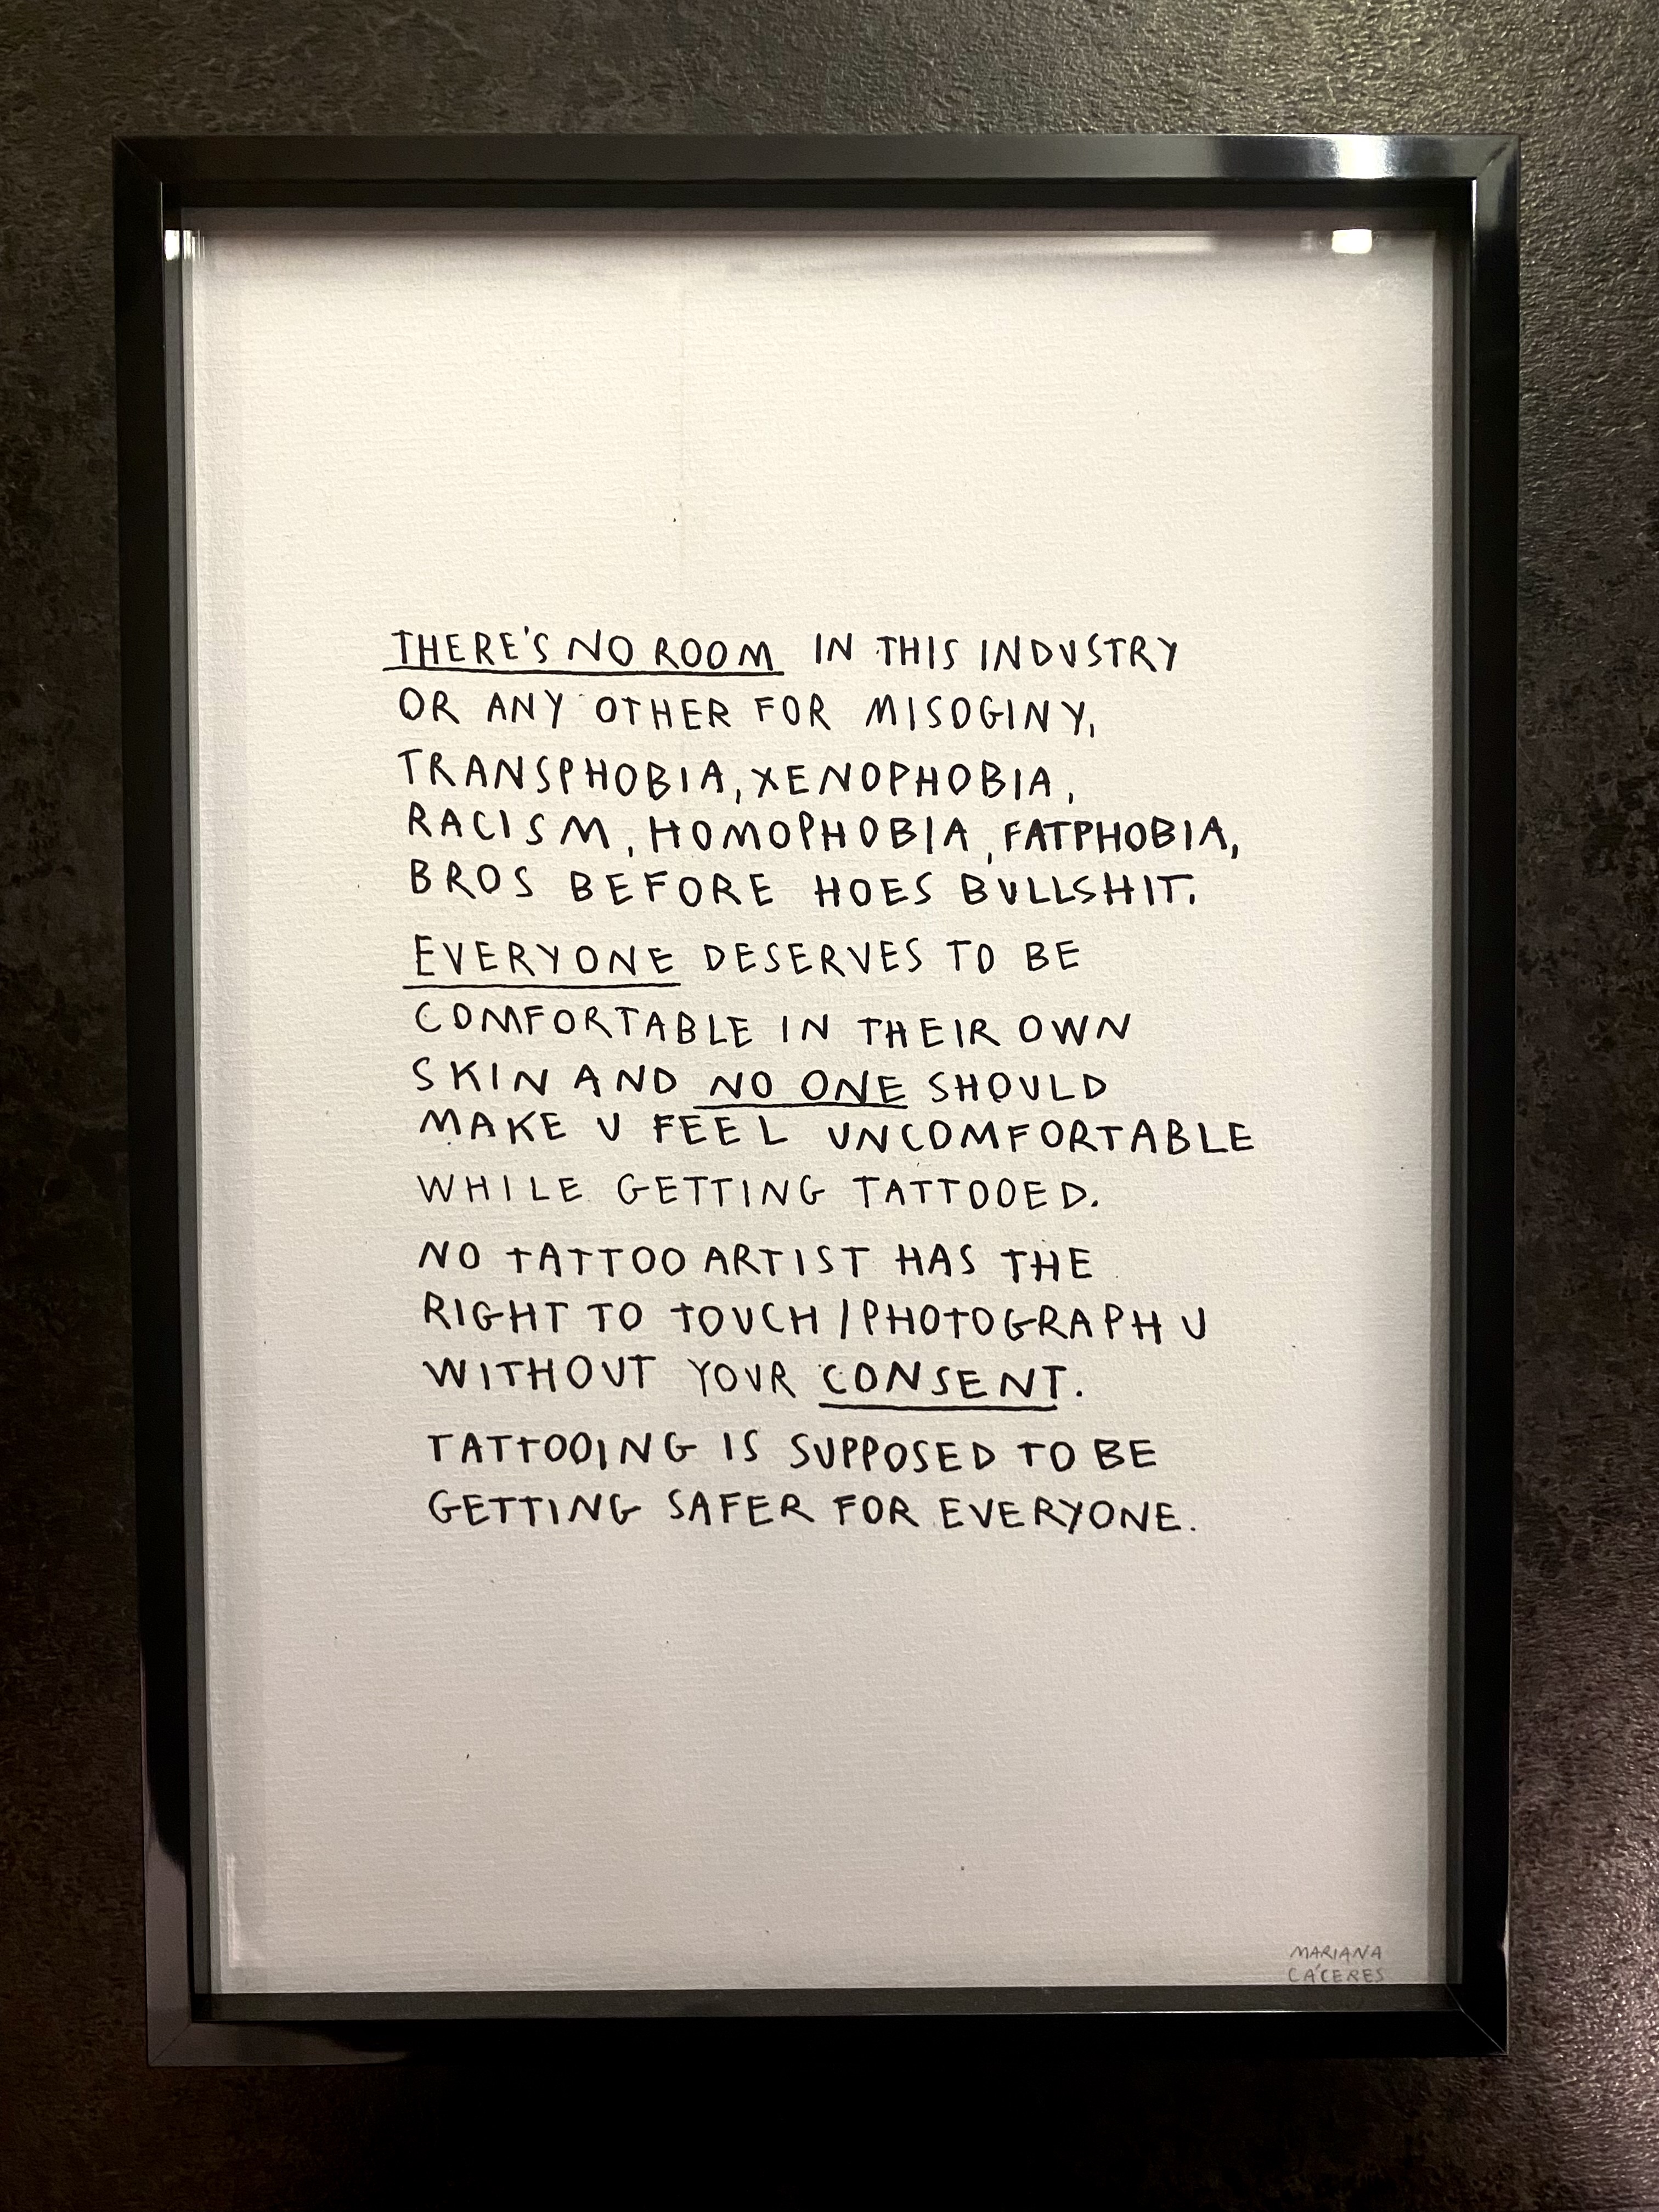 THERE'S NO ROOM IN THIS INDUSTRY
OR ANY OTHER FOR MISOGINY,
TRANSPHOBIA, XENOPHOBIA,
RACISM, HOMOPHOBIA, FATPHOBIA,
BROS BEFORE HOES BULLSHIT.
EVERYONE DESERVES TO BE
COMFORTABLE IN THEIR OWN
SKIN AND NO ONE SHOULD
MAKE U FEEL UNCOMFORTABLE
WHILE GETTING TATTOOED.
NO TATTOO ARTIST HAS THE
RIGHT TO TOUCH / PHOTOGRAPH U
WITHOUT YOUR CONSENT.
TATTOOING IS SUPPOSED TO BE
GETTING SAFER FOR EVERYONE.
MARIANA
CÁCERES